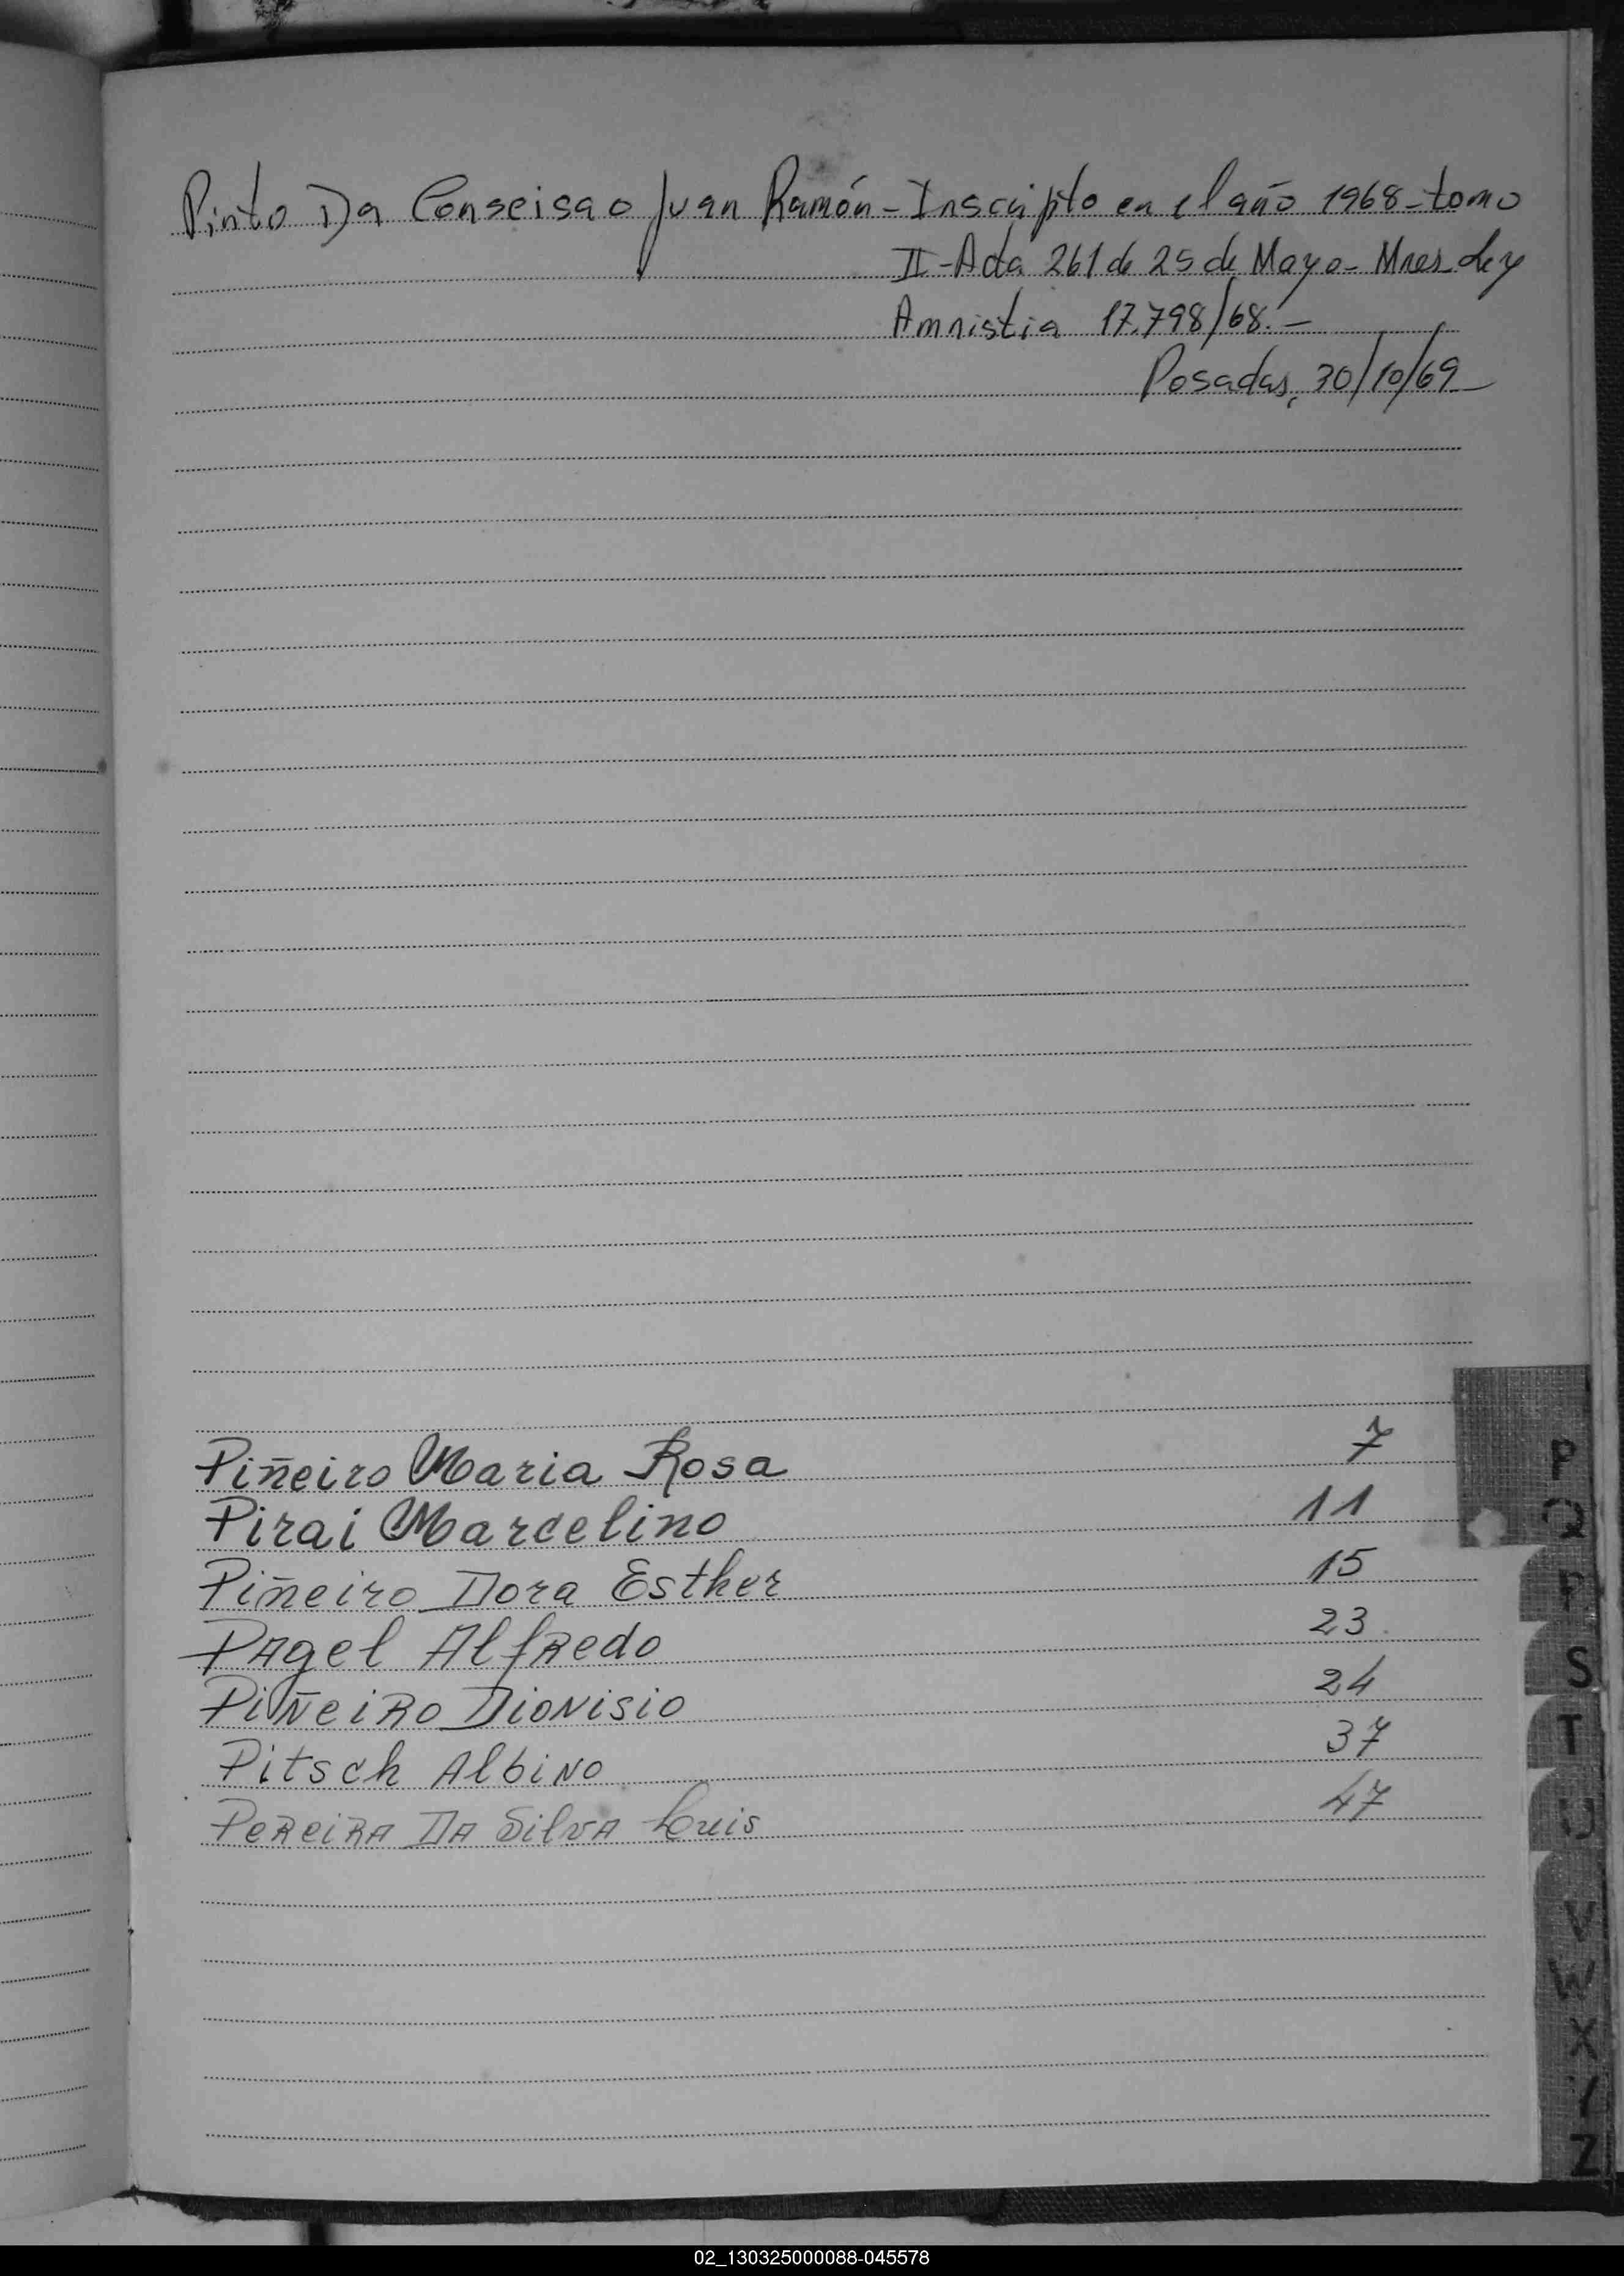 Pinto Da Conseisao Juan Ramón - Inscripto en el año 1968 - tomo
II - Acta 261 de 25 de Mayo - Mnes. Ley
Amnistia 17.798/68. -
Posadas, 30/10/69
Piñeiro Maria Rosa 7
Pirai Marcelino 11
Piñeiro Dora Esther 15
PAgel AlfRedo 23
PiÑeiRo DioNisio 24
Pitsch AlbiNo 37
PeReiRA DA SilvA Luis 47
P
Q
R
S
T
U
V
W
X
Y
Z
02_130325000088-045578